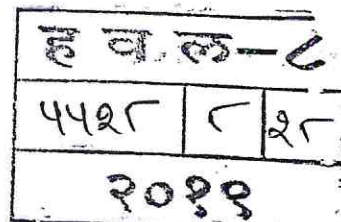 ह व ल-८
५५२८ ८ २८
२०११